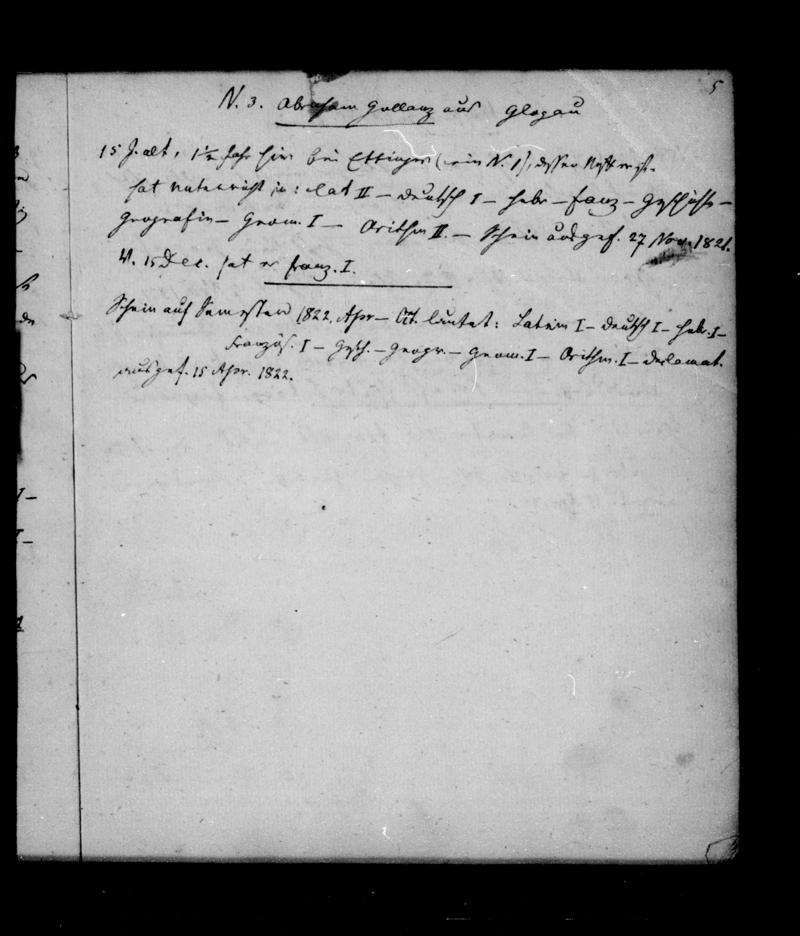 5
N. 3. Abraham Gollanz aus Glogau
15 J. alt, 1½ Jahr hier bei Ettinger (wie N. 1), dessen Neffe er ist.
hat Unterricht in: Lat II – deutsch I – hebr – franz – Geschichte –
Geografie – Geom. I – Arithm II. – Schein ausgef. 27 Nov. 1821.
V. 15 Dec. hat er franz. I.
Schein auf Semester 1822. Apr – Oct. lautet: Latein I – deutsch I – hebr. I –
Französ. I – Gesch. – Geogr. – Geom. I – Arithm. I – declamat.
ausgef. 15 Apr. 1822.